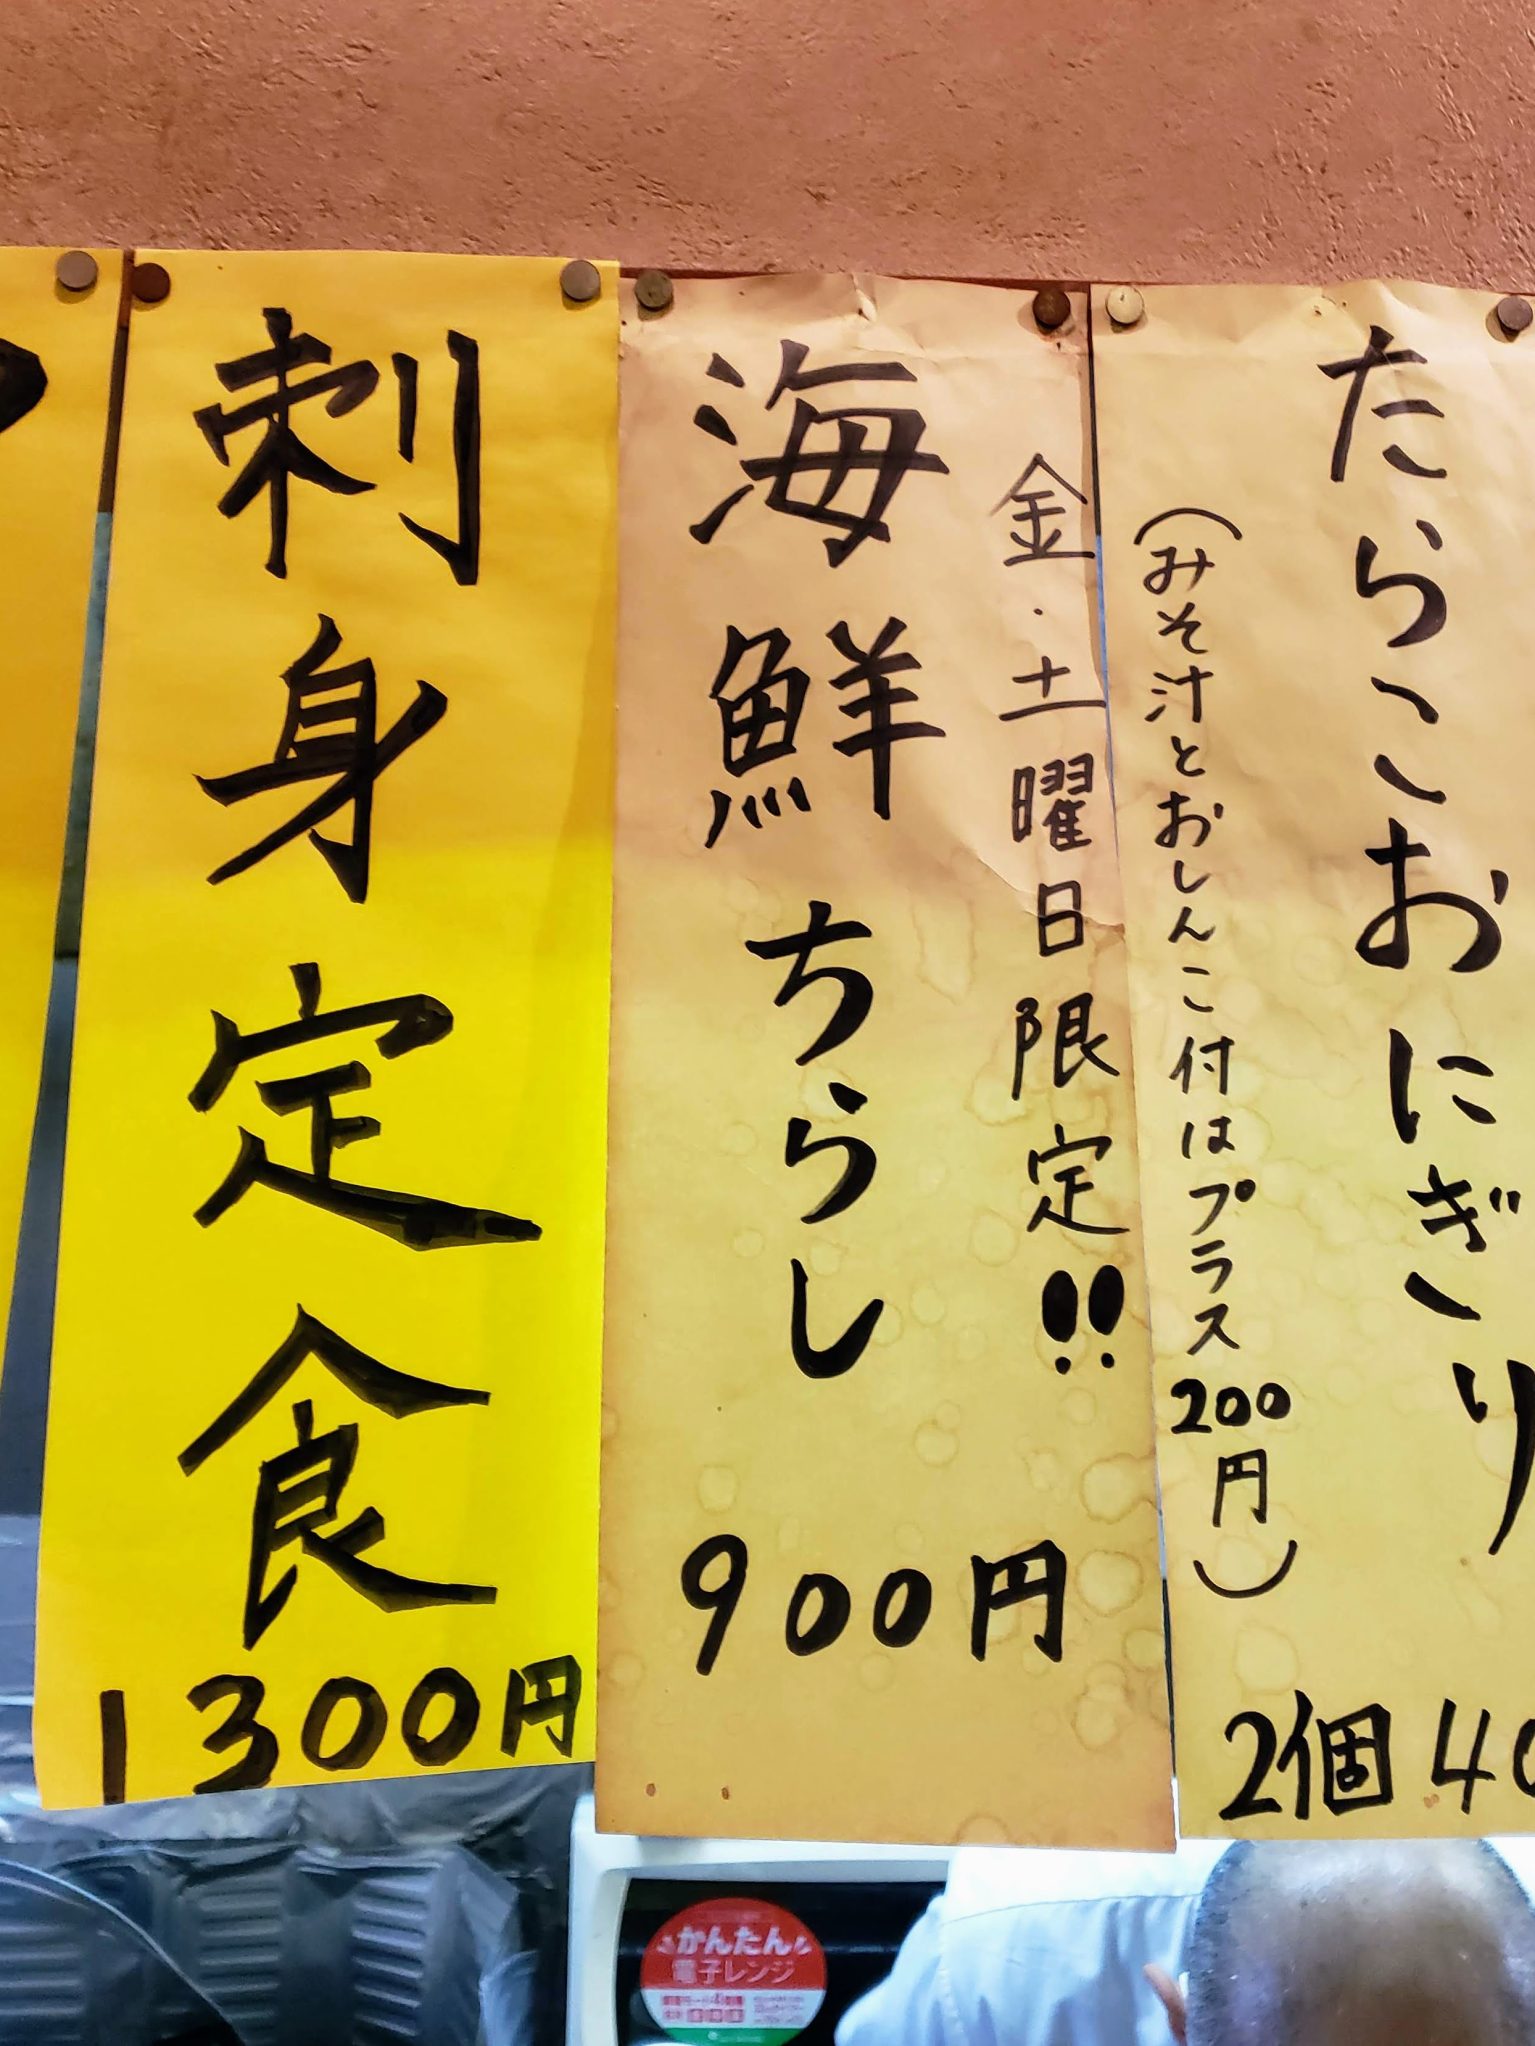 たらこおにぎり
(みそ汁とおしんこ付はプラス200円)
2個40
金・土曜日限定!!
海鮮ちらし
900円
刺身定食
1300円
かんたん
電子レンジ